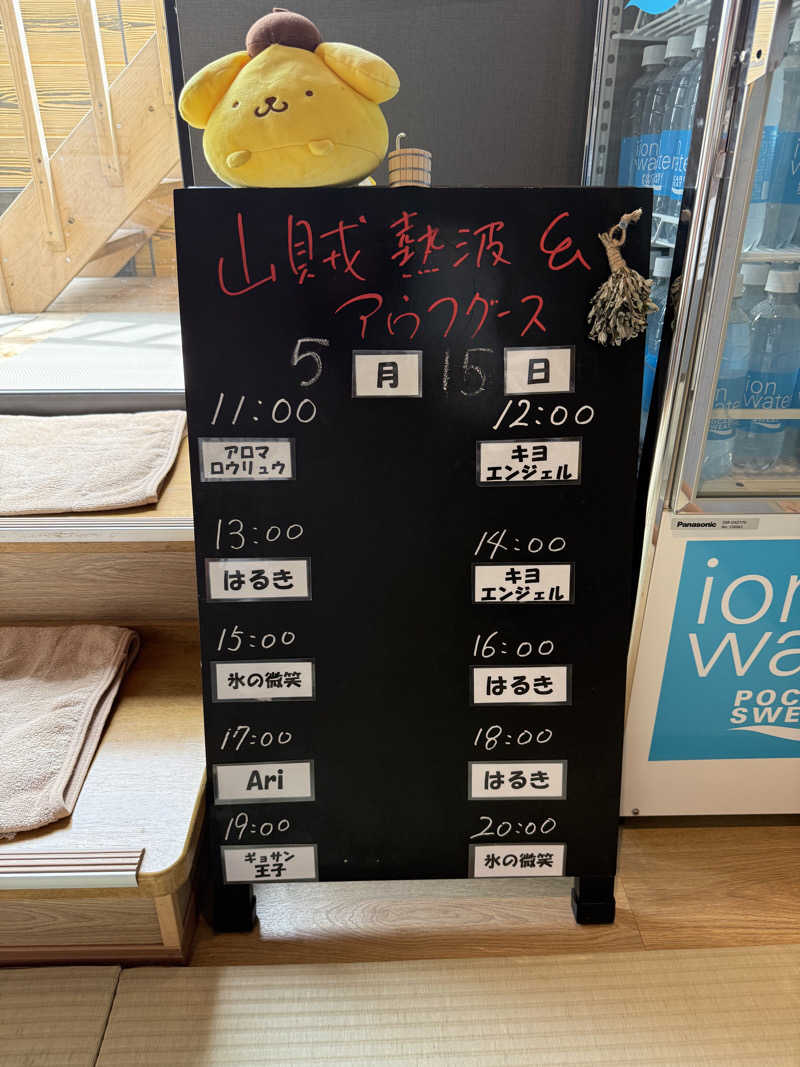 山賊熱波&
アウフグース
5月15日
11:00 12:00
アロマ
ロウリュウ
キヨ
エンジェル
13:00 14:00
はるき
キヨ
エンジェル
15:00 16:00
氷の微笑 はるき
17:00 18:00
Ari はるき
19:00 20:00
ギョサン
王子
氷の微笑
Panasonic
ion
water
POC
SWE